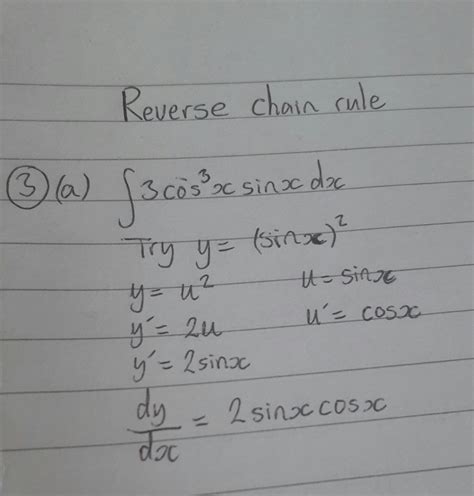 Reverse chain rule
③(a) ∫3cos³x sinx dx
Try y = (sinx)²
y = u² u = sinx
y' = 2u u' = cosx
y' = 2sinx
dy/dx = 2sinxcosx